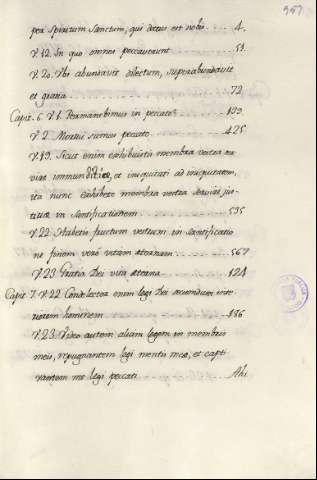 357
per Spiritum Sanctum, qui datus est nobis . . 4.
V. 12. In quo omnes peccaverunt . . . . . 51.
V. 20. Ubi abundavit delictum, superabundavit
et gratia . . . . . 72
Capit. 6 V. 1. Permanebimus in peccato? . . . 199
V. 2. Mortui sumus peccato . . . . . 425
V. 19. Sicut enim exhibuistis membra vestra ser
vire immunditiæ, et iniquitati ad iniquitatem,
ita nunc exhibete membra vestra servire jus-
titiæ in santificationem . . . . . 595
V. 22. Habetis fructum vestrum in santificatio
ne finem verò vitam æternam . . . . . 567
V. 23. Gratia Dei vita æterna . . . . . 124
Capit. 7. V. 22. Condelector enim legi Dei secundum inte
riorem hominem . . . . . 596
V. 23. Video autem aliam legem in membris
meis, repugnantem legi mentis meæ, et capti
vantem me legi peccati . . . . . Ahi